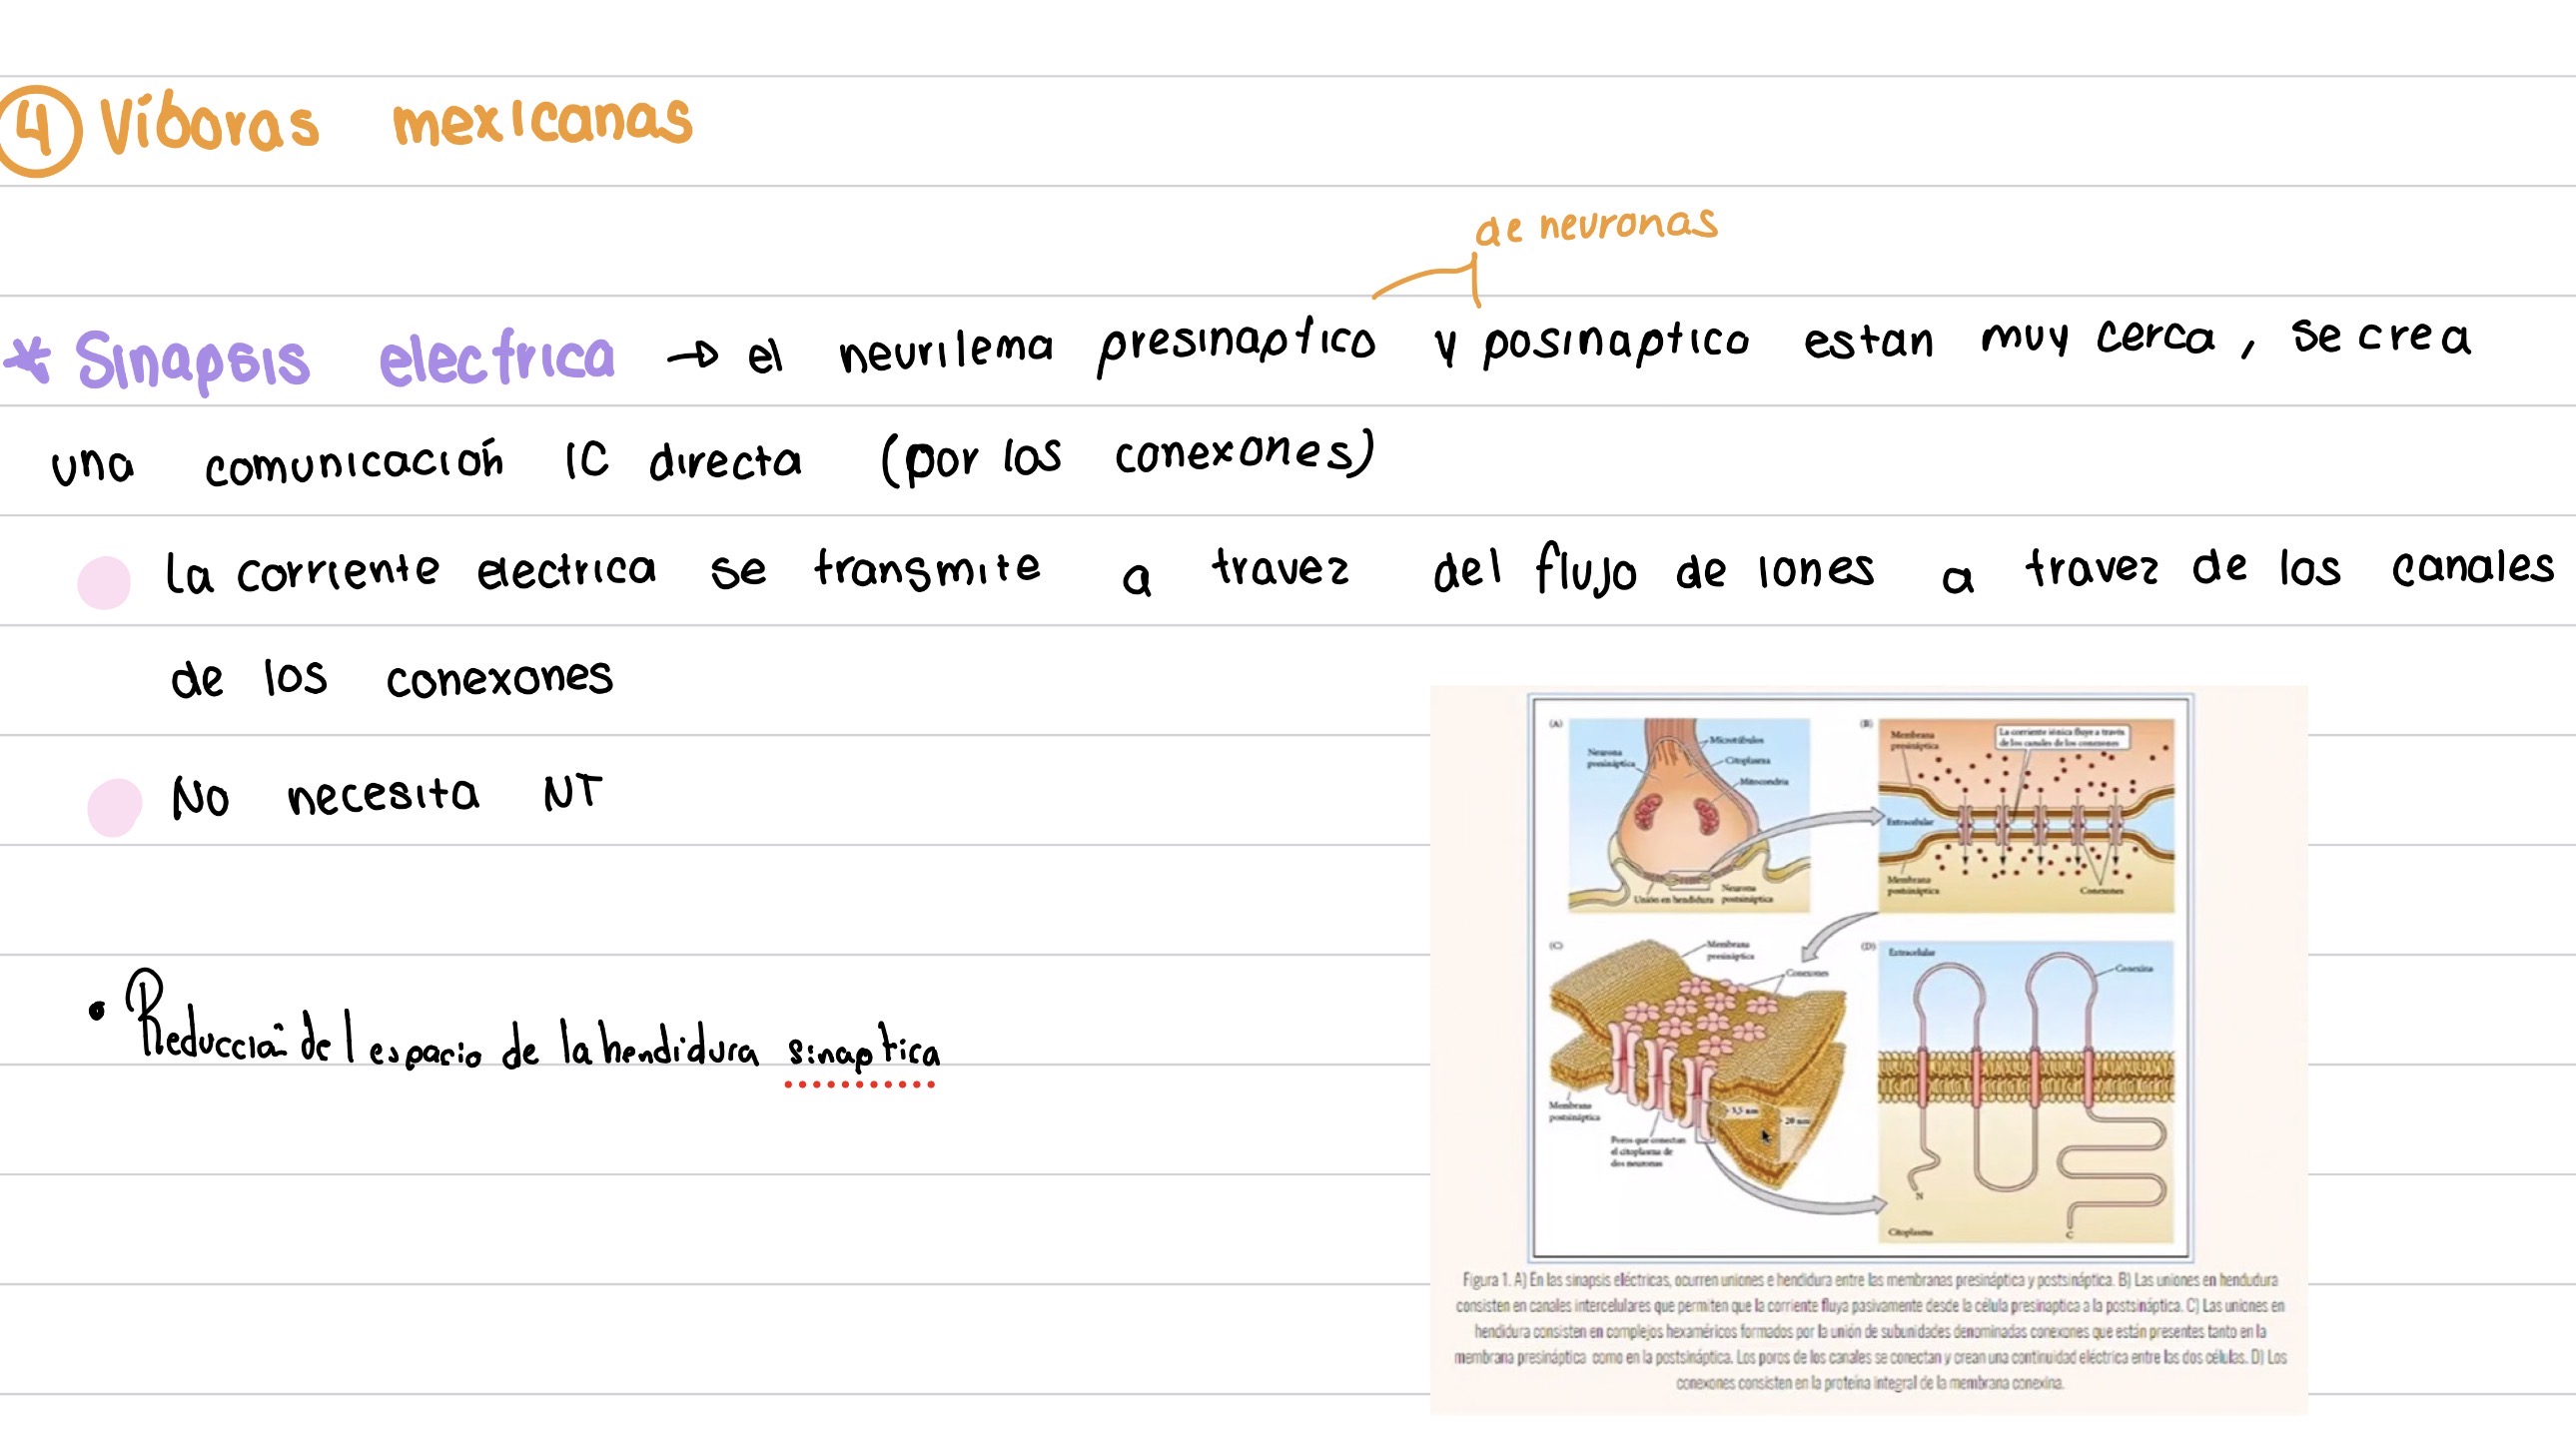 4 Víboras mexicanas
de neuronas
* Sinapsis electrica → el neurilema presinaptico y posinaptico estan muy cerca, se crea
una comunicación IC directa (por los conexones)
La corriente electrica se transmite a travez del flujo de iones a travez de los canales
de los conexones
No necesita NT
• Reducción del espacio de la hendidura sinaptica
(A)
Neurona
presináptica
Microtúbulos
Citoplasma
Mitocondria
Unión en hendidura
Neurona
postsináptica
(B)
Membrana
presináptica
La corriente iónica fluye a través
de los canales de los conexones
Extracelular
Membrana
postsináptica
Conexones
(C)
Membrana
presináptica
Conexones
3,5 nm
20 nm
Membrana
postsináptica
Poros que conectan
el citoplasma de
dos neuronas
(D)
Extracelular
Conexina
N
C
Citoplasma
Figura 1. A) En las sinapsis eléctricas, ocurren uniones e hendidura entre las membranas presináptica y postsináptica. B) Las uniones en hendudura
consisten en canales intercelulares que permiten que la corriente fluya pasivamente desde la célula presinaptica a la postsináptica. C) Las uniones en
hendidura consisten en complejos hexaméricos formados por la unión de subunidades denominadas conexones que están presentes tanto en la
membrana presináptica como en la postsináptica. Los poros de los canales se conectan y crean una continuidad eléctrica entre las dos células. D) Los
conexones consisten en la proteína integral de la membrana conexina.